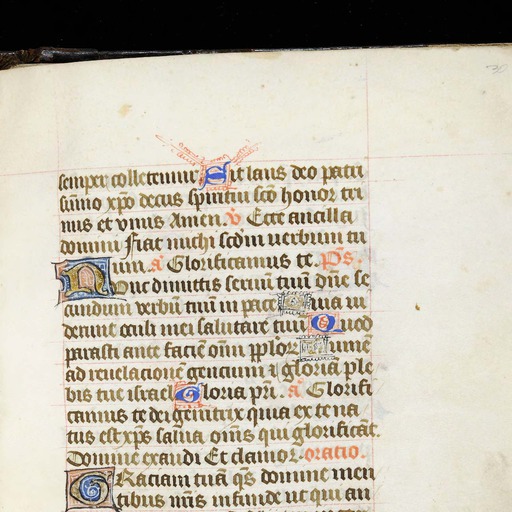 30
semper colletemur Sit laus deo patri
sūmo xp̄o decus spiritui sc̄o honor tri
nus et vnus Amen. v̄ Ecce ancilla
domini fiat michi scd̄m uerbum tu
um. a Glorificamus te. Ps.
Nunc dimittis seruū tuū dn̄e se
cundum verbū tuū in pace Quia ui
derunt oculi mei salutare tuū Quod
parasti ante faciē om̄i pploꝝ Lumē
ad reuelacionē gencium ⁊ gloriā ple
bis tue israel Gloria pr̄i. a Glorifi
camus te dei genitrix quia ex te na
tus est xp̄s salua om̄s qui glorificāt.
Domine exaudi Et clamor. oratio.
GRaciam tuā qs̄ domine men
tibus nr̄is infunde ut qui an